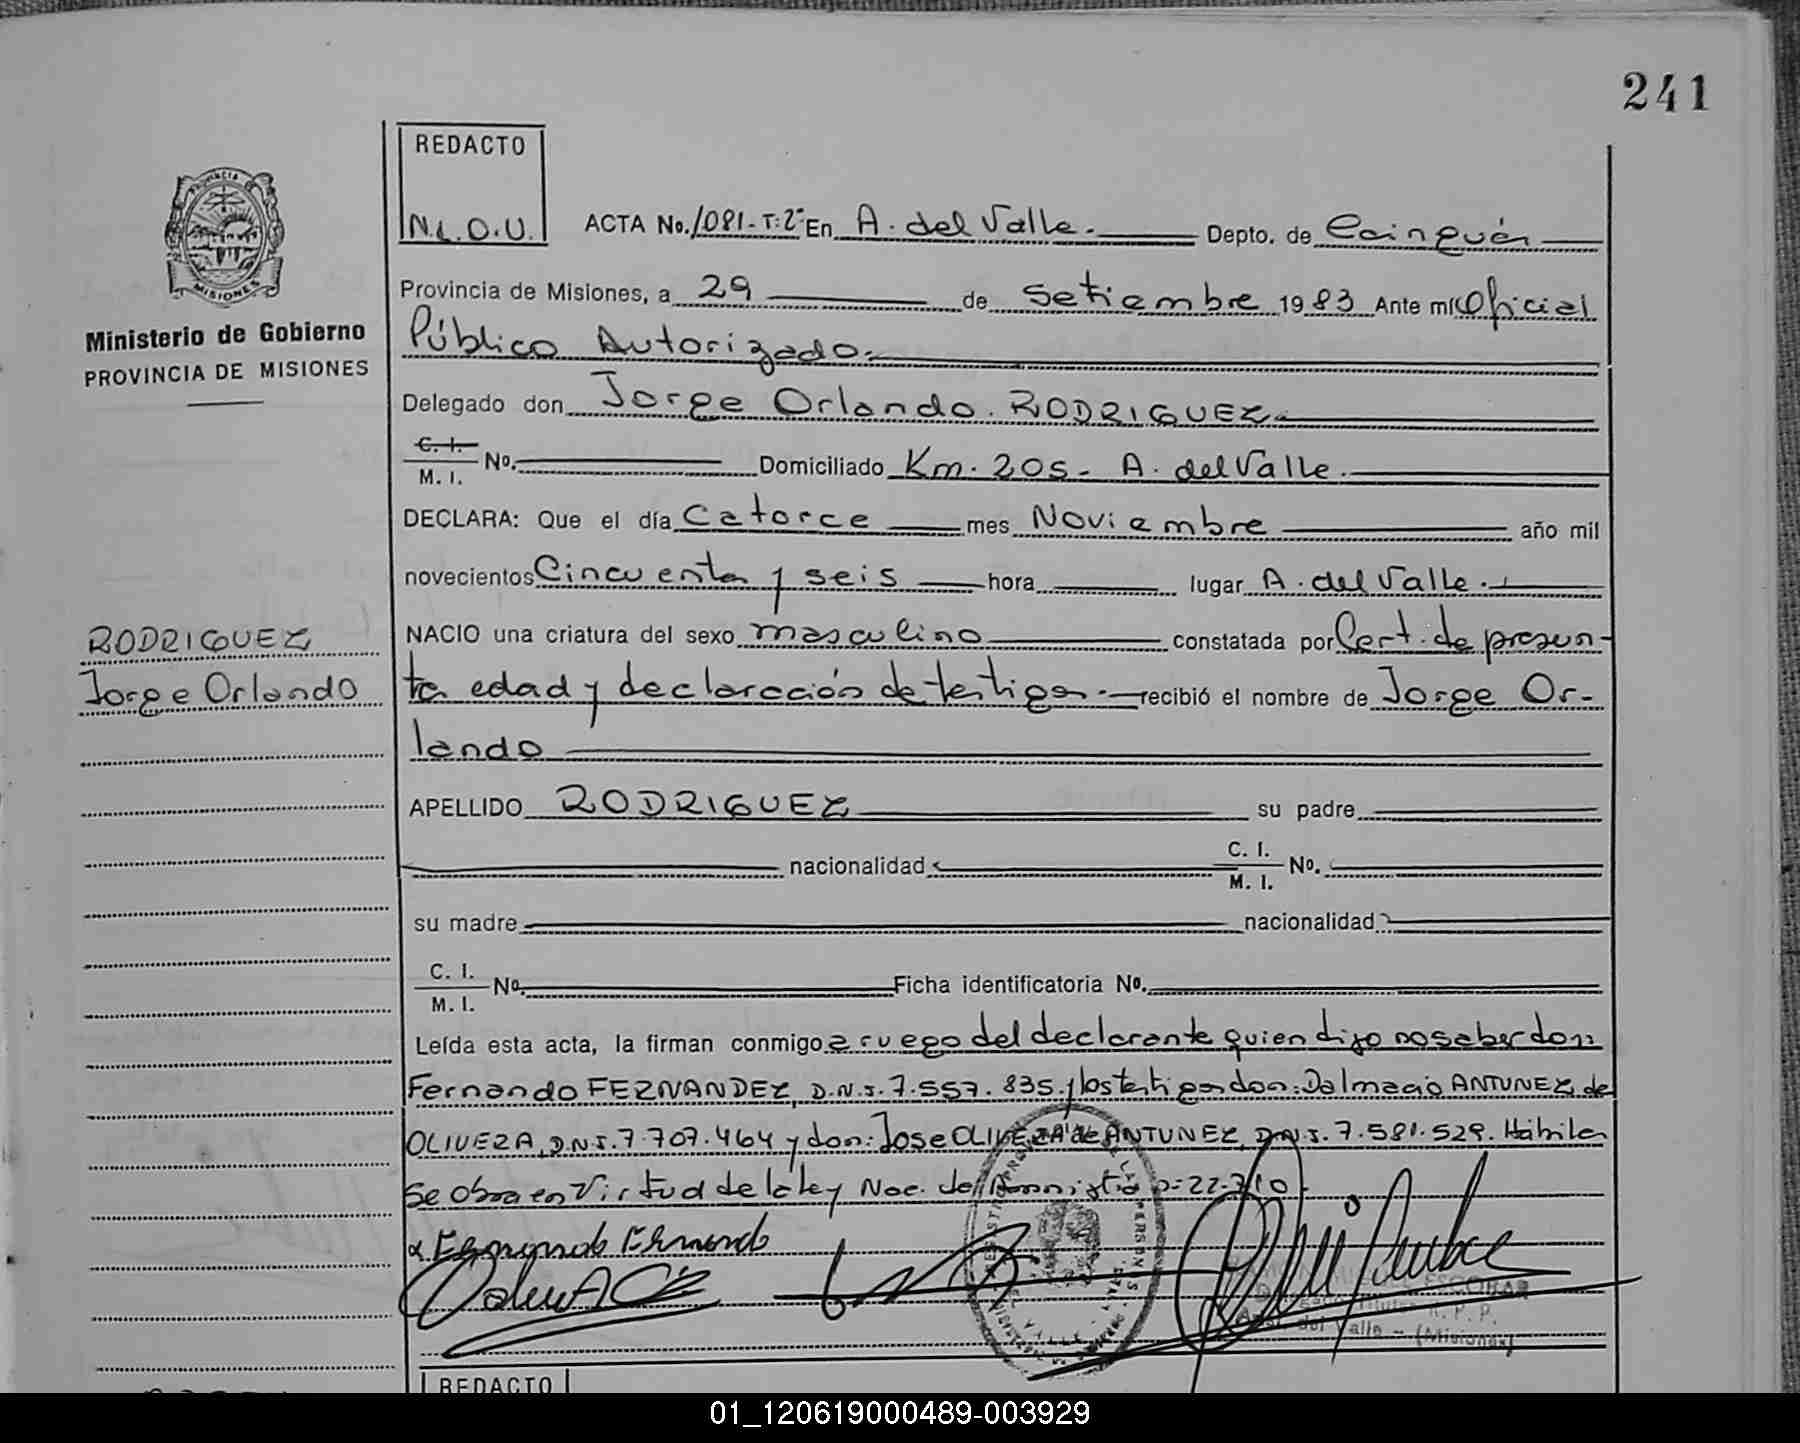 241
REDACTO
N.L.O.U.
ACTA No. 1081-T:2º En A. del Valle.- Depto. de Cainguás
PROVINCIA
MISIONES
Provincia de Misiones, a 29 de Setiembre 1983 Ante mí Oficial
Ministerio de Gobierno
Público Autorizado.-
PROVINCIA DE MISIONES
Delegado don Jorge Orlando. RODRIGUEZ.-
C. I.
M. I. No. Domiciliado Km. 205- A. del Valle.
DECLARA: Que el día Catorce mes Noviembre año mil
novecientos Cincuenta y seis hora lugar A. del Valle.-
RODRIGUEZ
NACIO una criatura del sexo masculino constatada por Cert. de presun-
Jorge Orlando
ta edad y declaración de testigos.- recibió el nombre de Jorge Or-
lando
APELLIDO RODRIGUEZ su padre
nacionalidad C. I.
M. I. No.
su madre nacionalidad
C. I.
M. I. No. Ficha identificatoria No.
Leída esta acta, la firman conmigo a ruego del declarante quien dijo no saber don:
Fernando FERNANDEZ, D.N.I. 7.557.835. y los testigos don: Dalmacio ANTUNEZ de
OLIVERA, D.N.I. 7.707.464 y don: Jose OLIVERA de ANTUNEZ, D.N.I. 7.581.529. Hábiles
Se obra en Virtud de la ley Nac. de Amnistia
ESCOBAR
R. P. P.
del Valle - (Misiones)
REDACTO
01_120619000489-003929